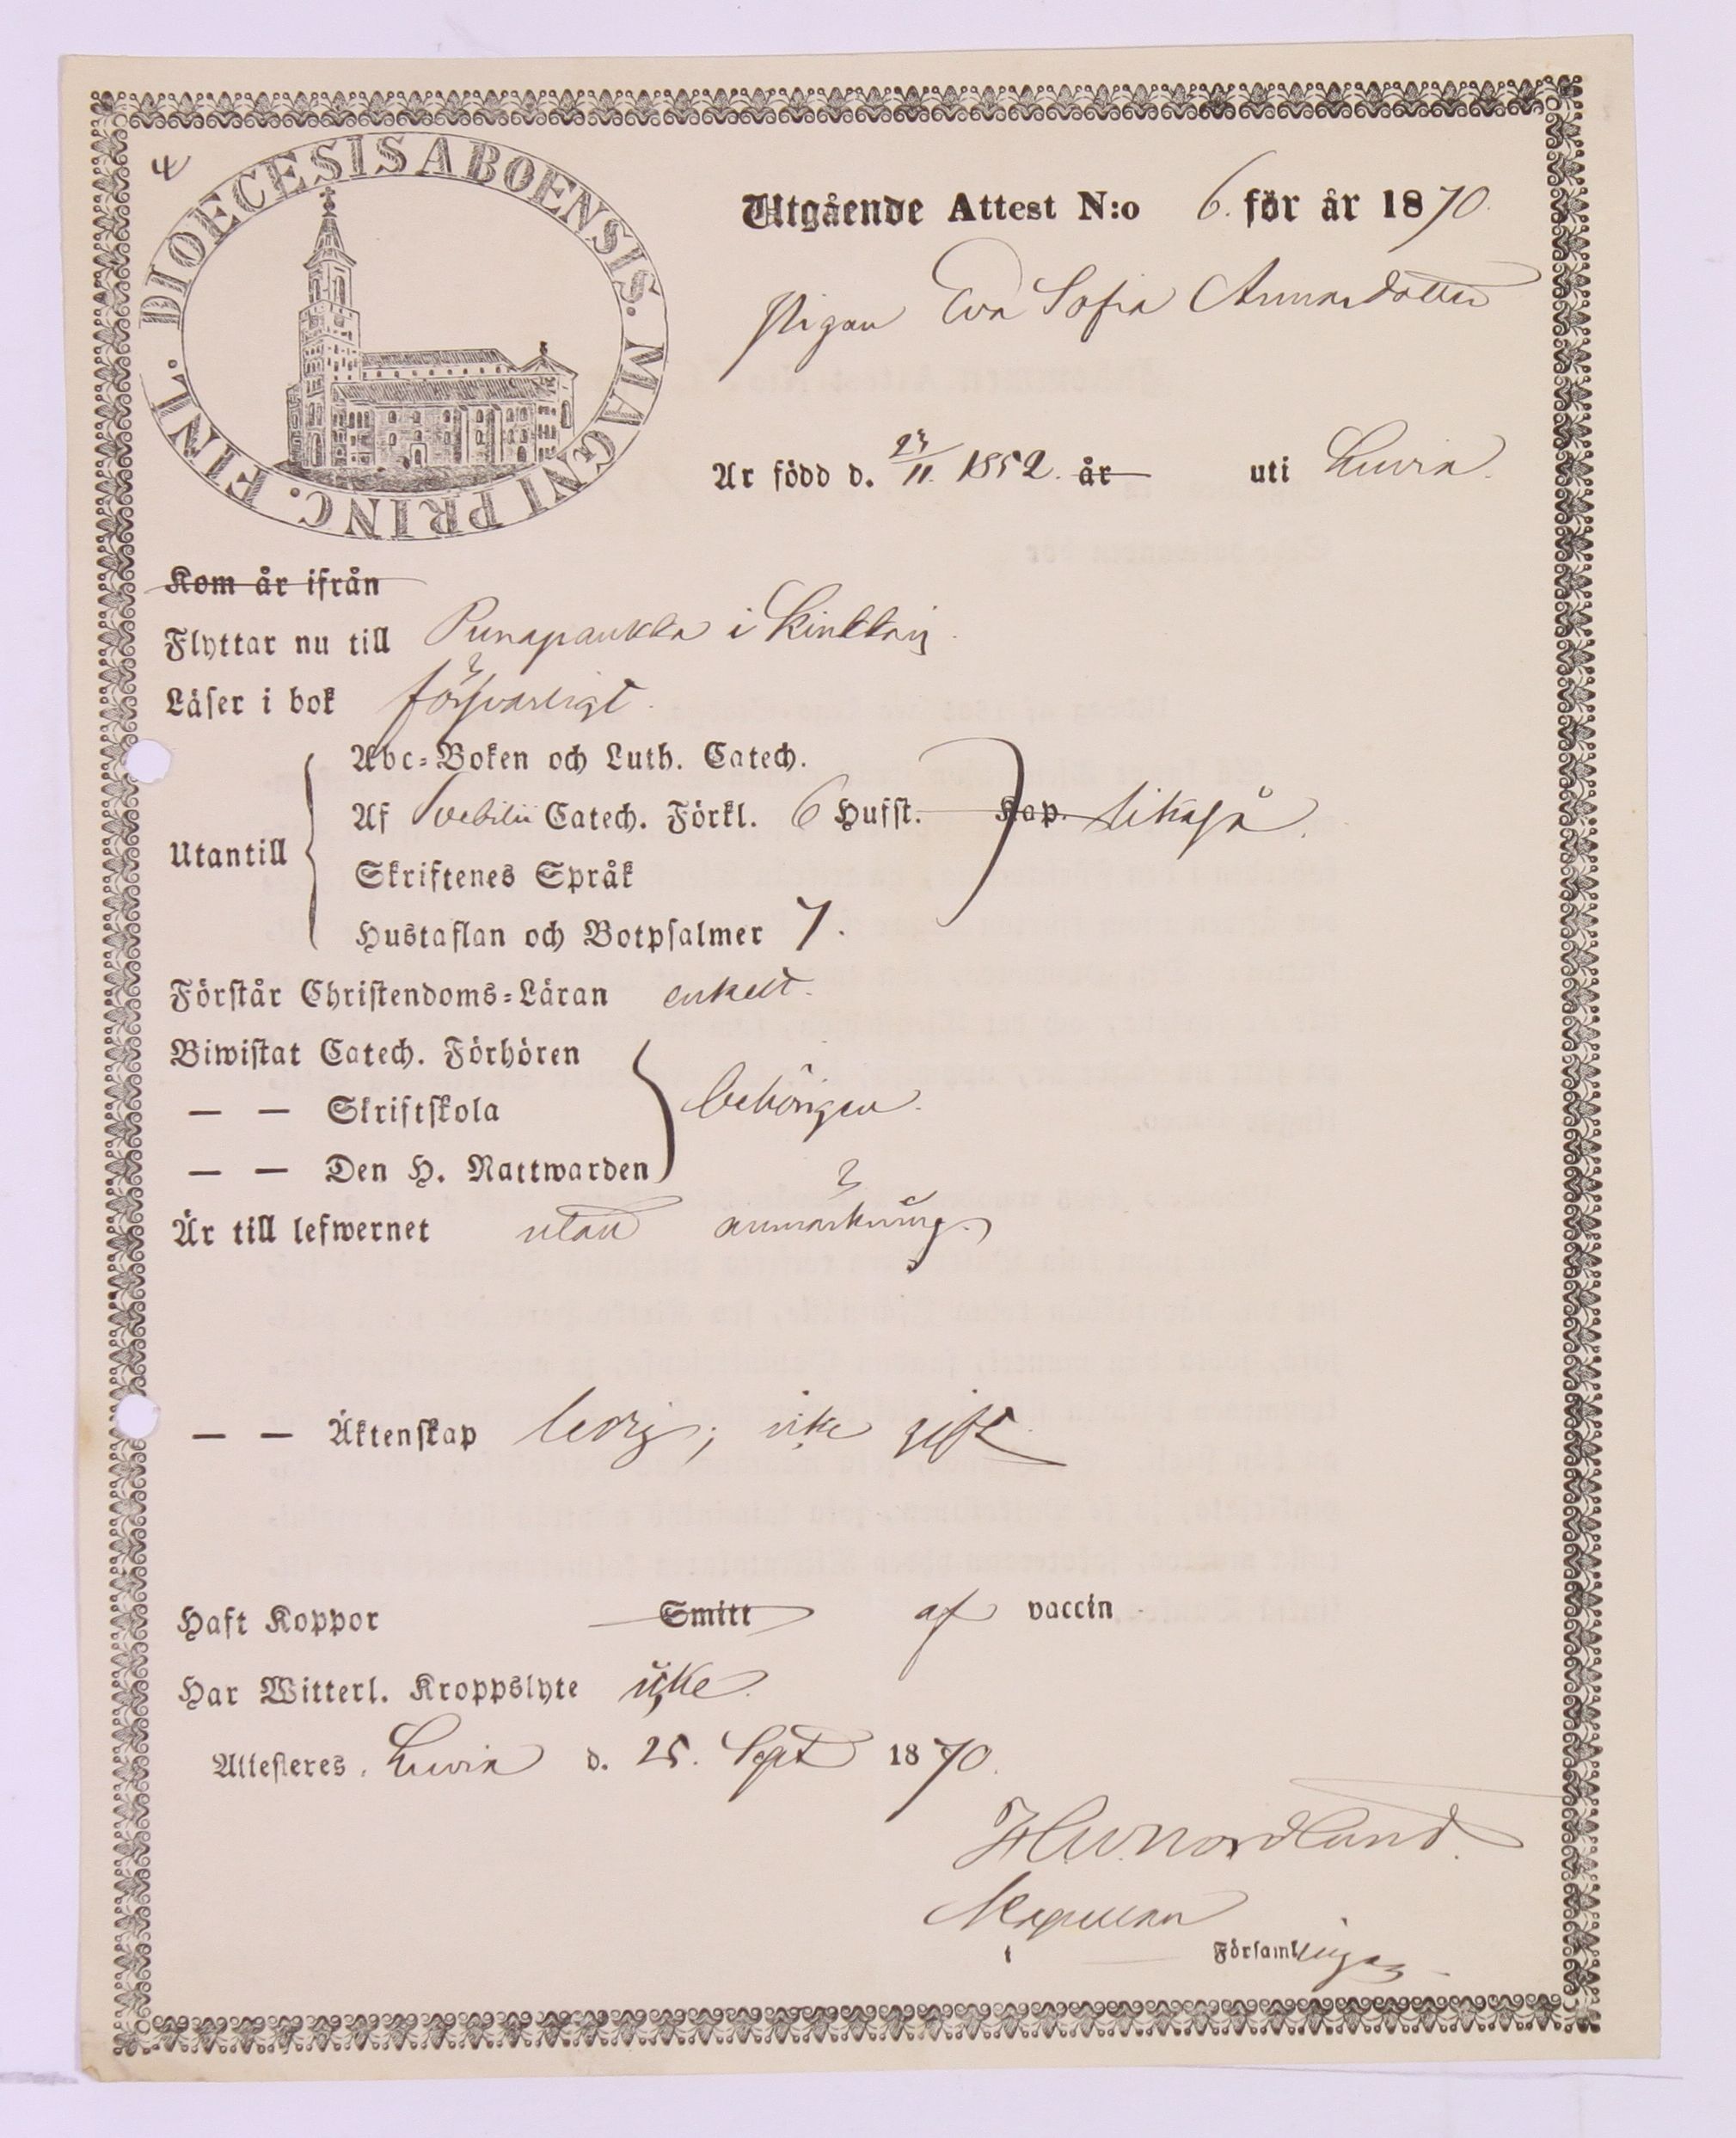 4
DIOECESIS ABOENSIS. MAGNI PRINC. FINL.
Utgående Attest N:o 6. för år 1870.
Pigan Eva Sofia Armasdotter
Är född d. 23/11. 1852. år uti Luvia.
Kom år ifrån
Flyttar nu till Punapaukka i Kinttaig.
Läser i bok försvarligt.
Abc-Boken och Luth. Catech.
Utantill Af Svebilii Catech. Förkl. 6 Hufst. Kap. likaså.
Skriftenes Språk
Hustaflan och Botpsalmer 7.
Förstår Christendoms-Läran enkelt.
Biwistat Catech. Förhören
— — Skriftskola behörigen.
— — Den H. Nattwarden
Är till lefwernet utan anmärkning.
— — Äktenskap ledig; icke gift
Haft Koppor Smitt af vaccin
Har Witterl. Kroppslyte icke.
Attesteres, Luvia d. 25. Sept 1870.
Nordlund.
Kapellan
i Församlingen